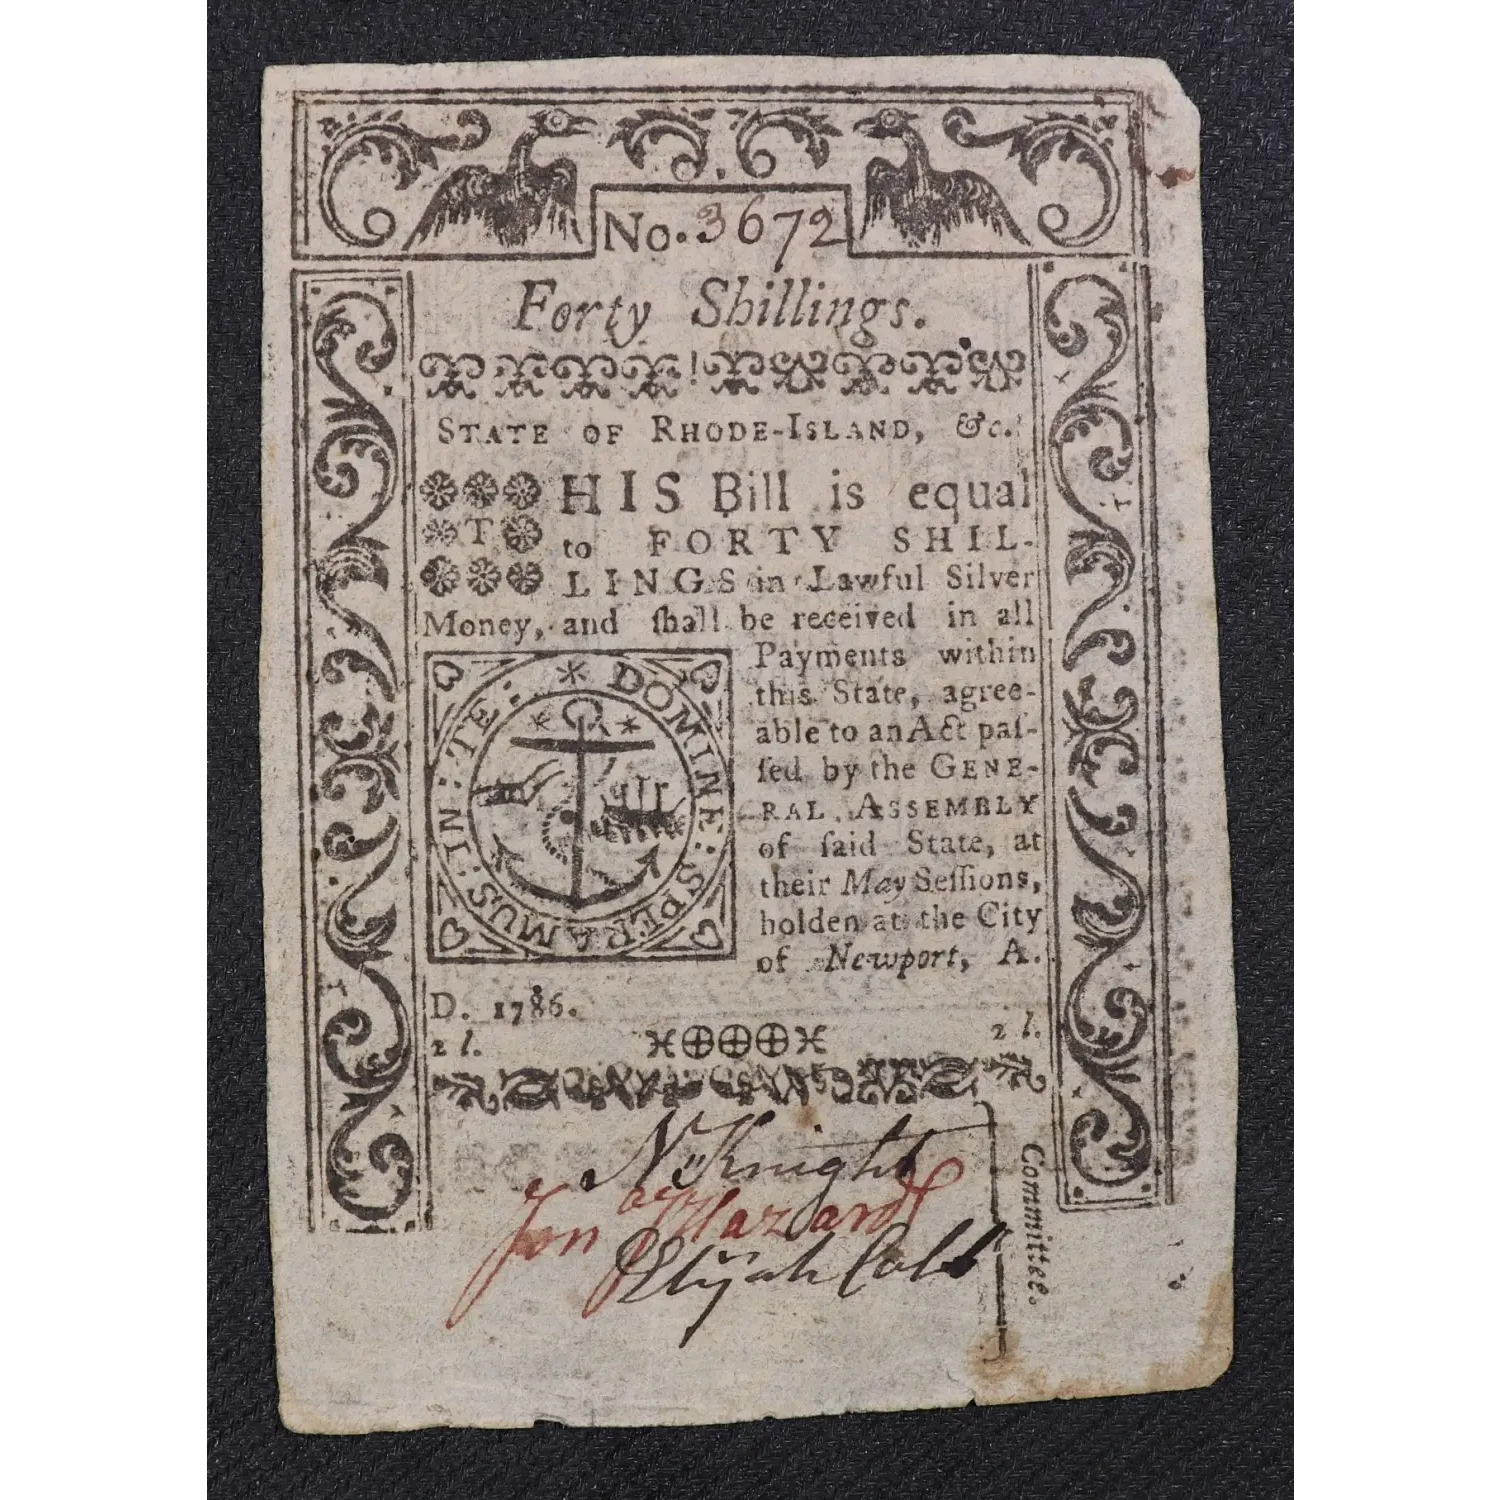 No. 3672
Forty Shillings.
STATE OF RHODE-ISLAND, &c.
THIS Bill is equal
to FORTY SHIL-
LINGS in Lawful Silver
Money, and ſhall be received in all
Payments within
this State, agree-
able to an Act paſ-
ſed by the GENE-
RAL ASSEMBLY
of ſaid State, at
their May Seſſions,
holden at the City
of Newport, A.
D. 1786.
2 l. 2 l.
IN : TE : * DOMINE : SPERAMUS :
N Knight
Jon J Hazard
Elijah Cobb
Committee.